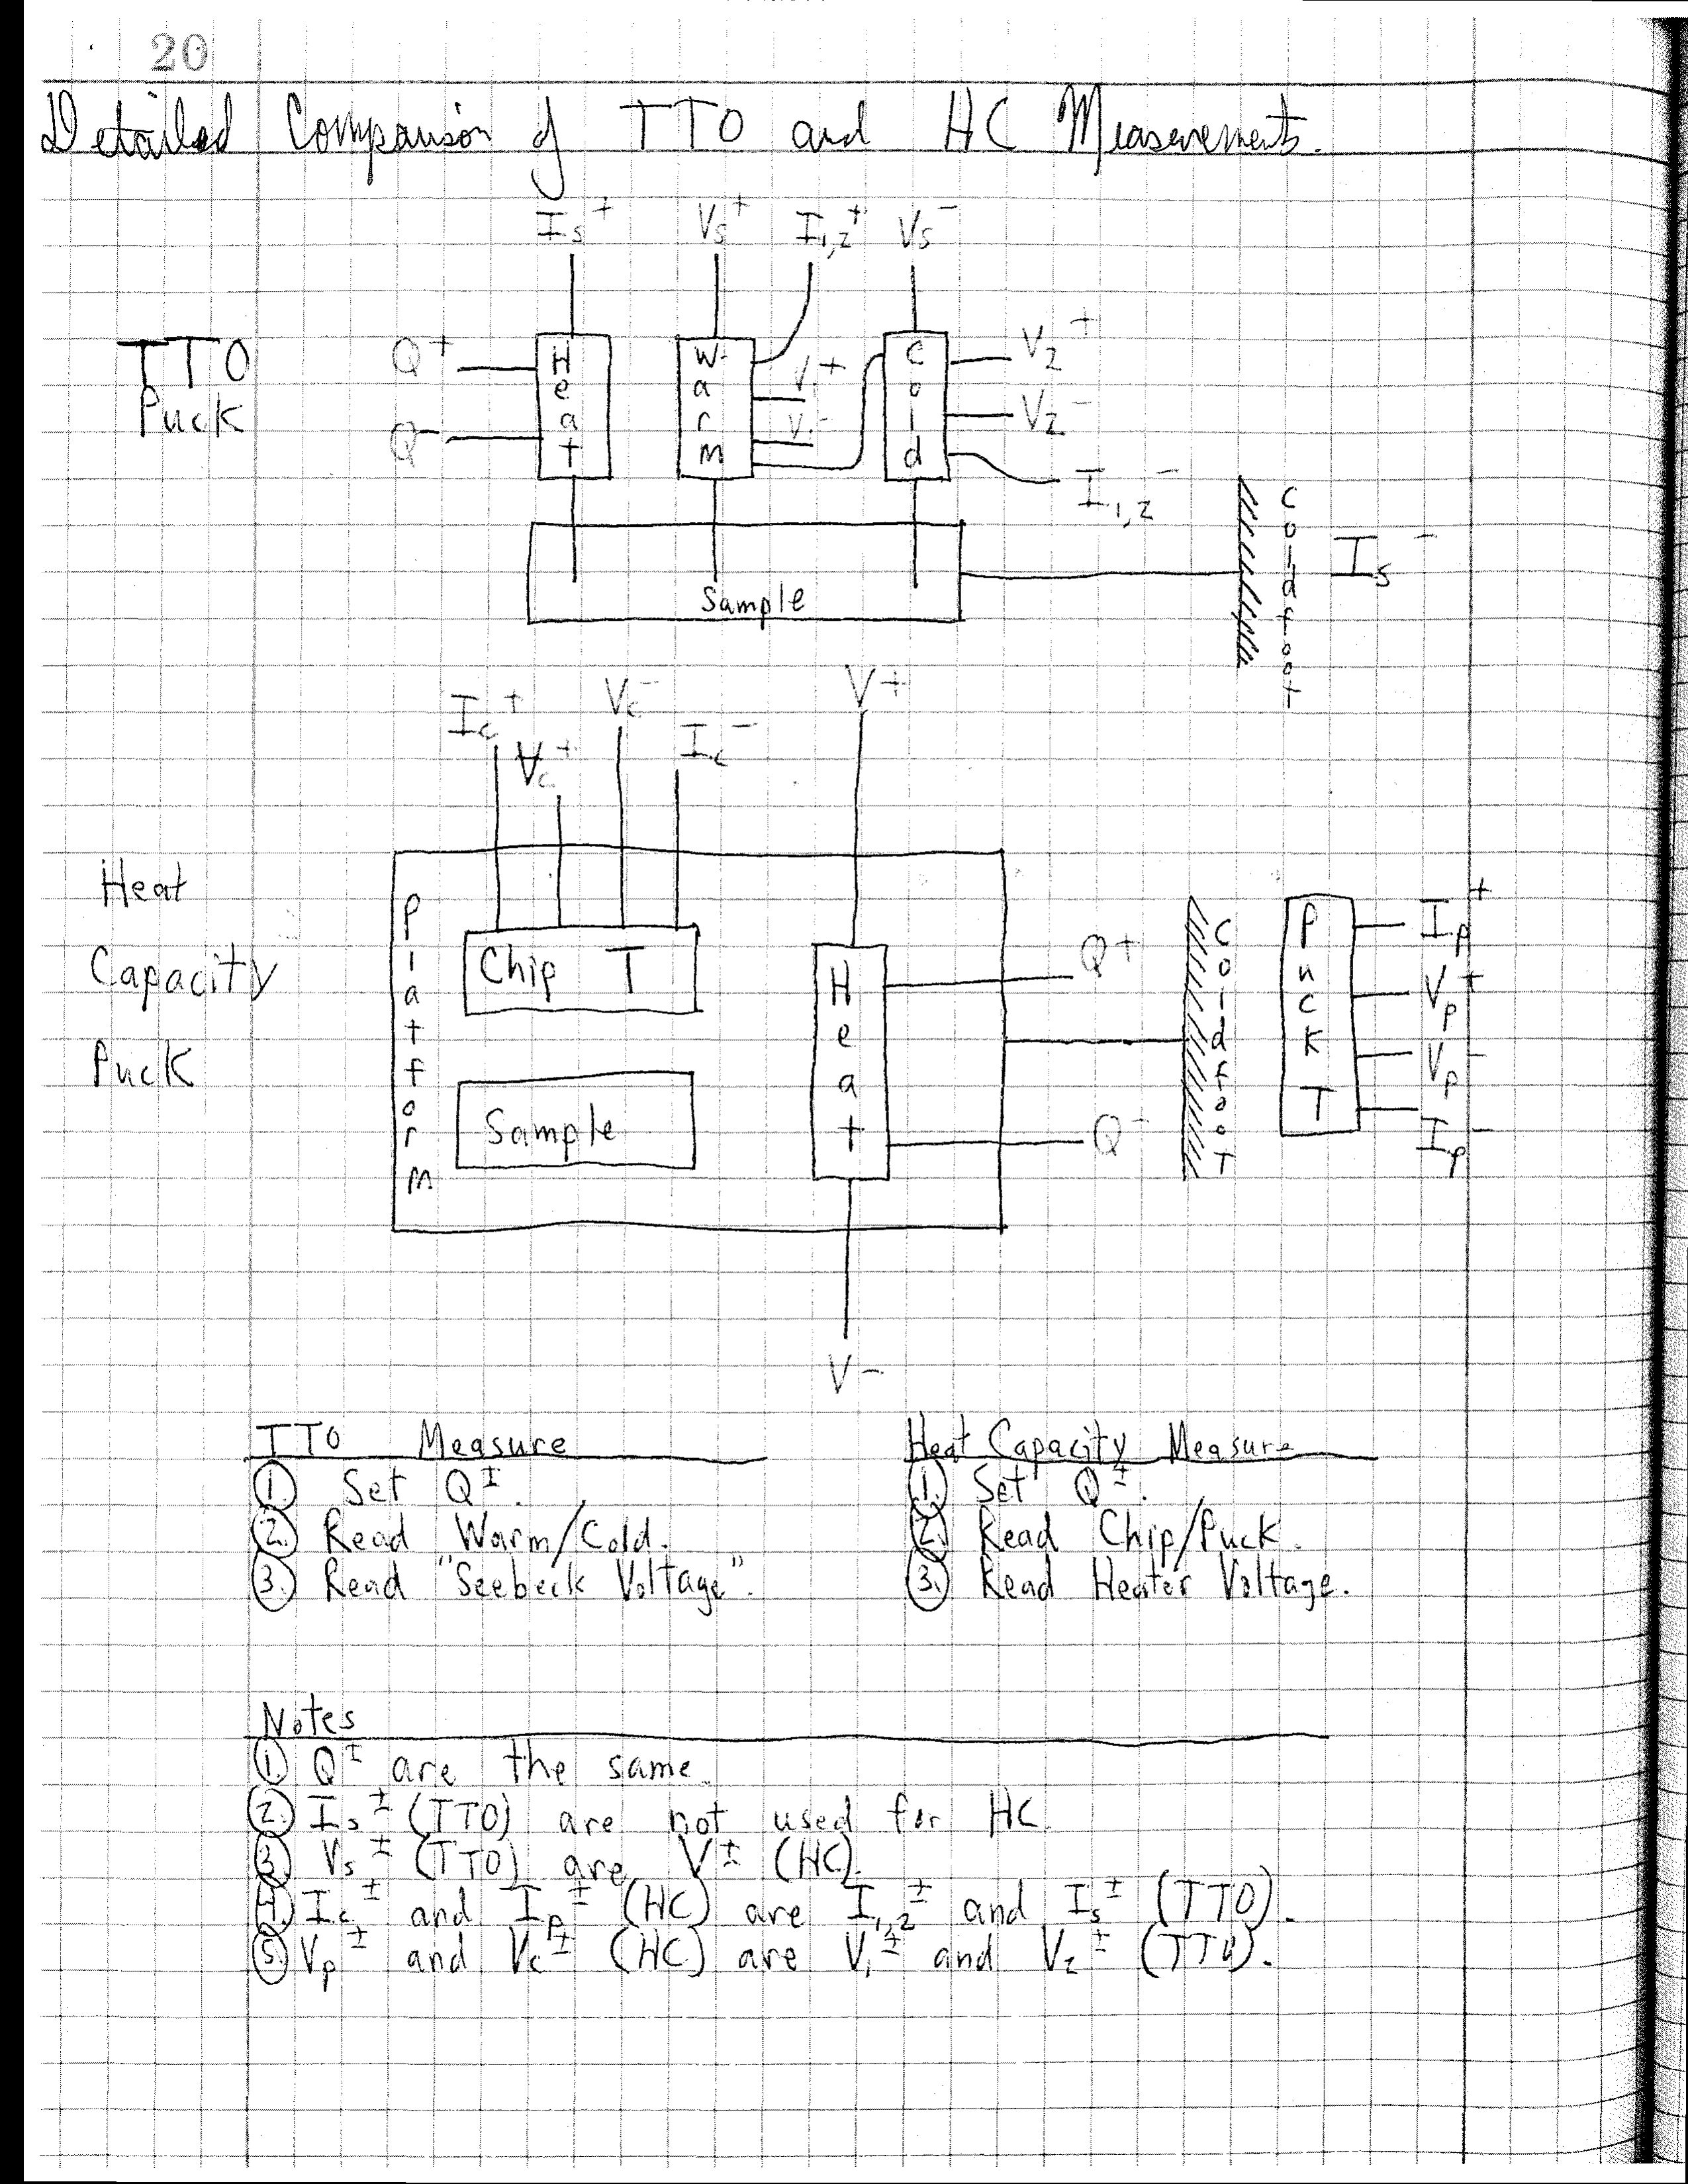 20
Detailed Comparison of TTO and HC Measurements.
Is+ Vs+ I1,2+ Vs-
TTO
Puck
Q+
Q-
Heat
Warm
V1+
V1-
Cold
V2+
V2-
I1,2-
Sample
Coldfoot
Is-
Ic+ Vc+ Vc- Ic- V+
Heat
Capacity
Puck
Platform
Chip T
Sample
Heat
Q+
Q-
ColdfooT
Puck T
Ip+
Vp+
Vp-
Ip-
V-
TTO Measure
1. Set Q±.
2. Read Warm/Cold.
3. Read "Seebeck Voltage".
Heat Capacity Measure
1. Set Q±.
2. Read Chip/Puck.
3. Read Heater Voltage.
Notes
1. Q± are the same.
2. Is± (TTO) are not used for HC.
3. Vs± (TTO) are V± (HC).
4. Ic± and Ip± (HC) are I1,2± and Is± (TTO).
5. Vp± and Vc± (HC) are V1± and V2± (TTO).